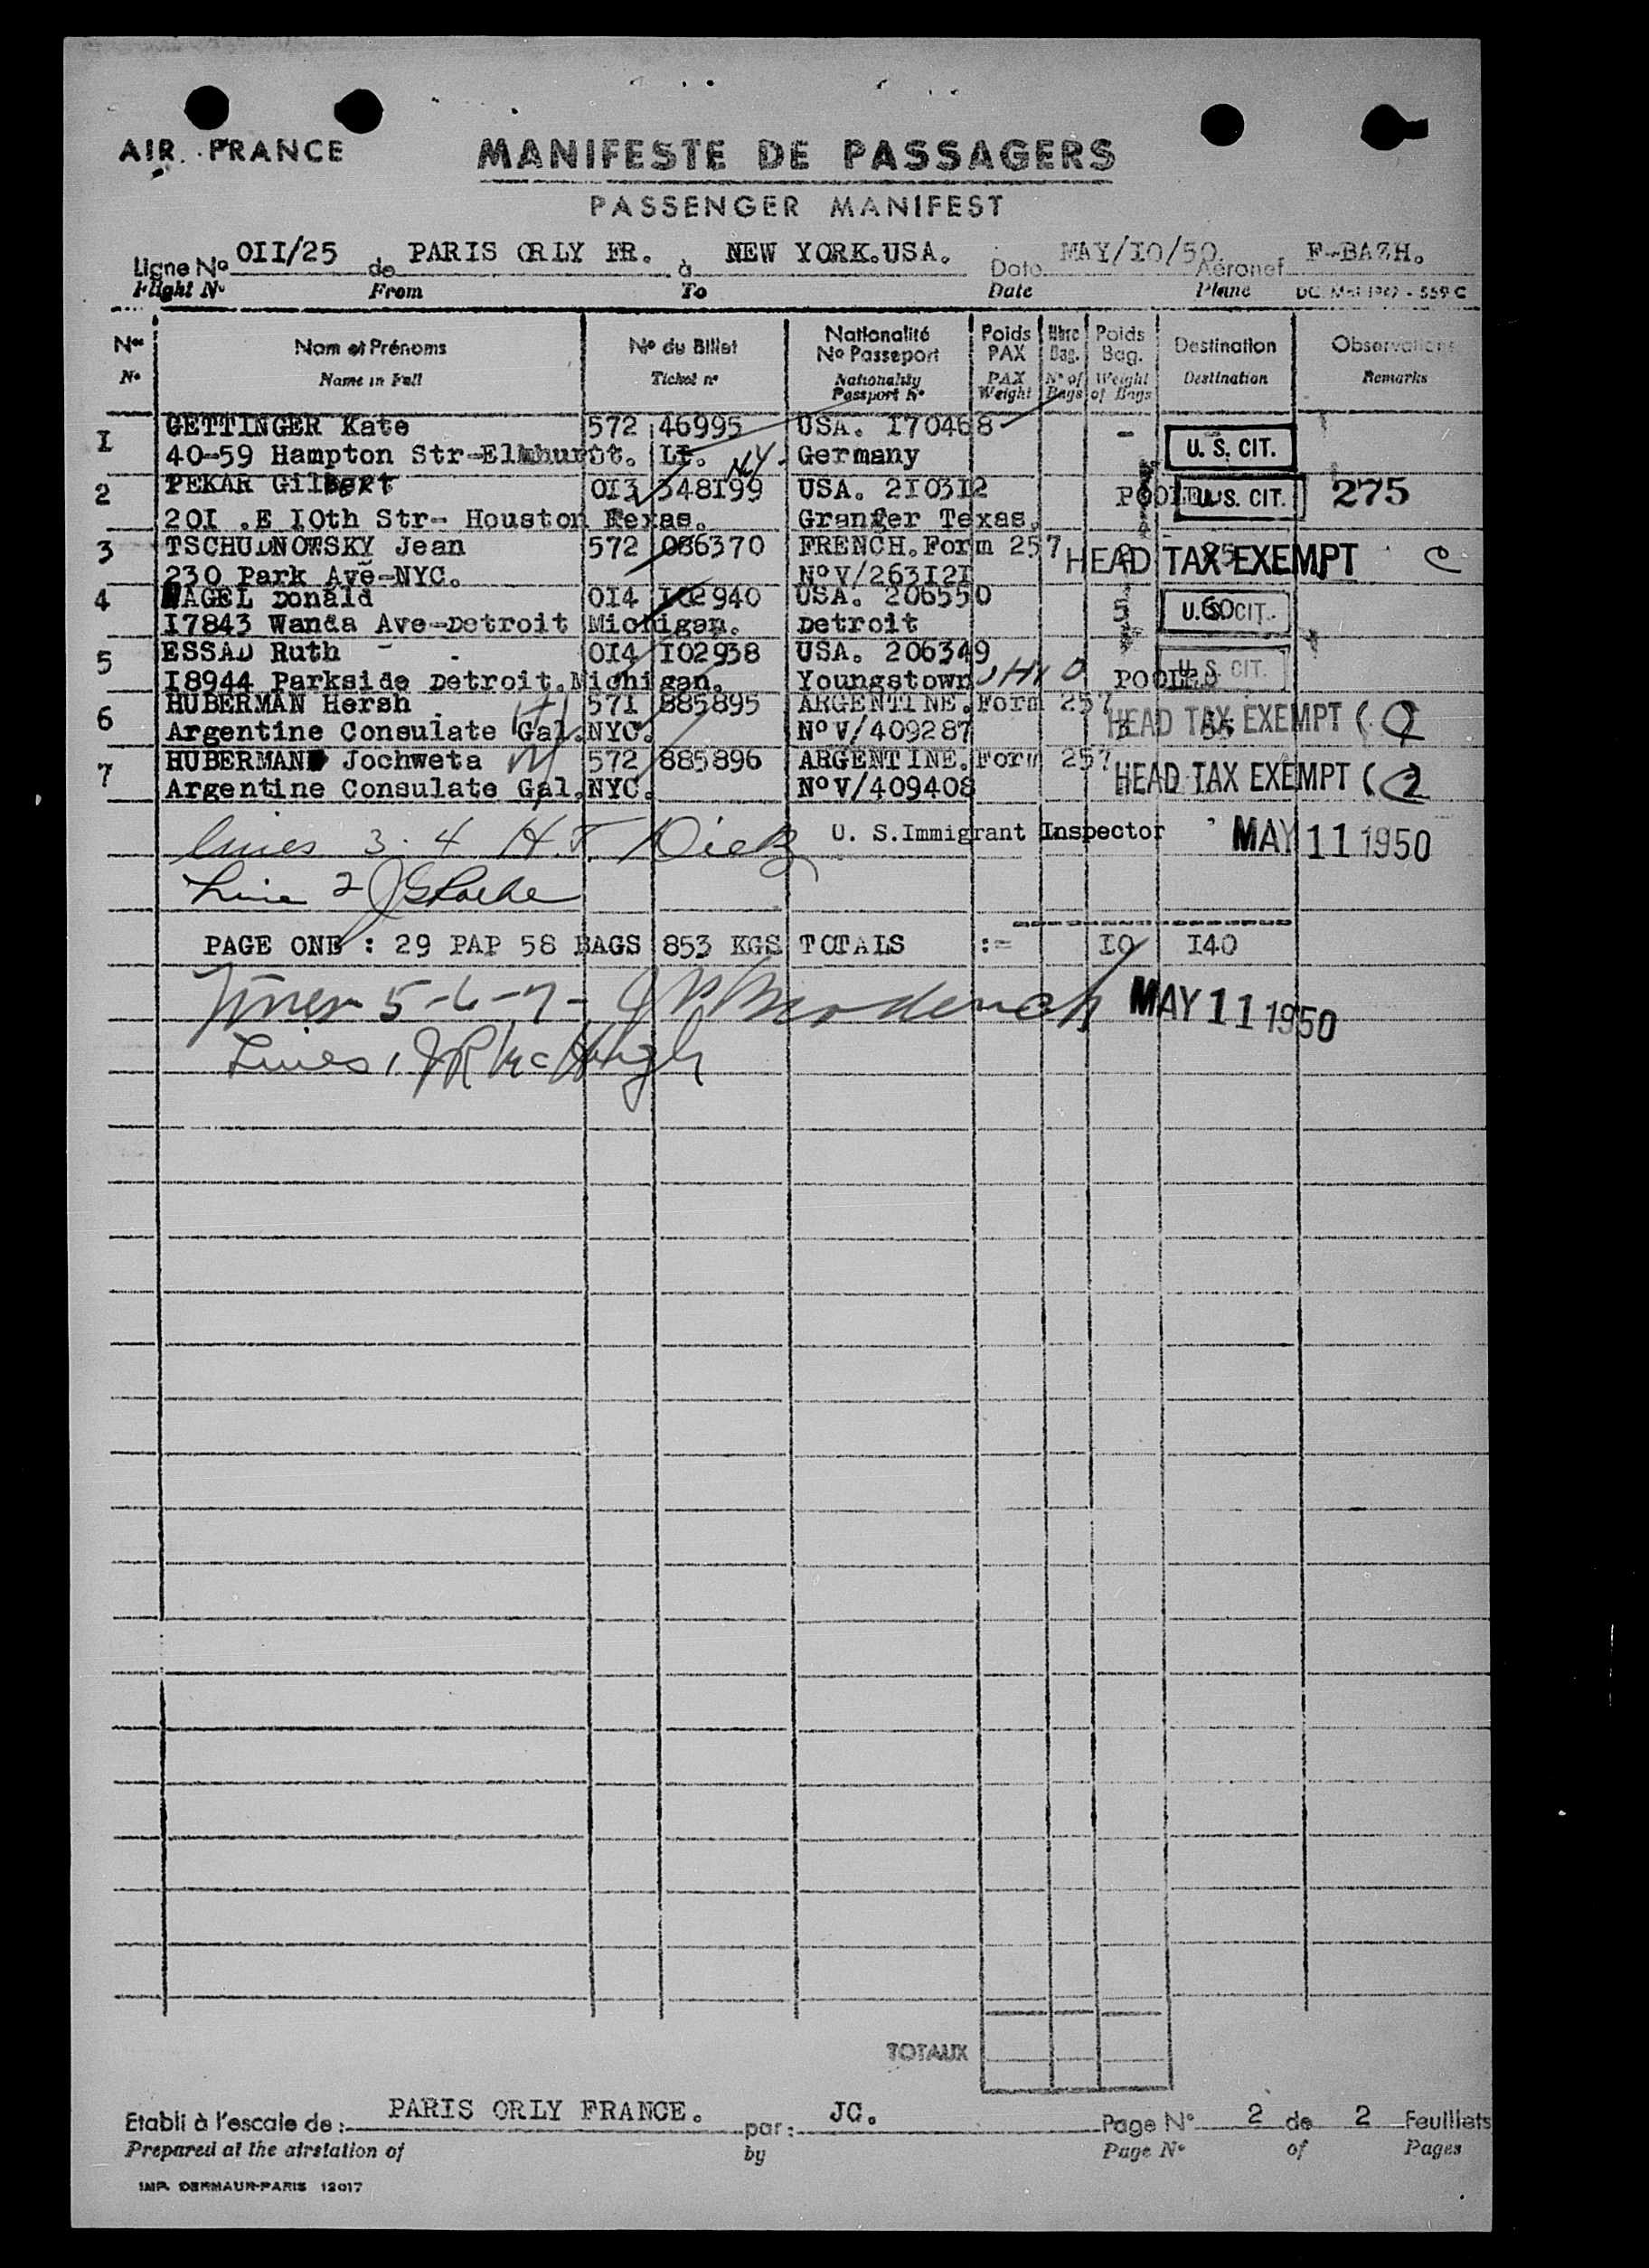 AIR FRANCE
MANIFESTE DE PASSAGERS
PASSENGER MANIFEST
Ligne No OII/25 de PARIS ORLY FR. à NEW YORK.USA. Date MAY/IO/50. Aéronef F-BAZH.
Flight No From To Date Plane
Nos Nom et Prénoms No du Billet Nationalité No Passeport Poids PAX Nbre Bag. Poids Bag. Destination Observations
No Name in Full Ticket no Nationality Passport No PAX Weight No of Bags Weight of Bags Destination Remarks
I GETTINGER Kate 572 46995 USA. I70468 -
40-59 Hampton Str-Elmhurst. LI. N.Y. Germany U. S. CIT.
2 PEKAR Gilbert 0I3 348I99 USA. 2I03I2 POOLED U. S. CIT. 275
20I .E IOth Str- Houston Texas. Granger Texas.
3 TSCHUDNOWSKY Jean 572 086370 FRENCH.Form 257 HEAD TAX EXEMPT C
230 Park Ave-NYC. NoV/263I2I
4 NAGEL Donald 0I4 I02940 USA. 206550 5 60 U. S. CIT.
I7843 Wanda Ave-Detroit Michigan. Detroit
5 ESSAD Ruth 0I4 I02938 USA. 206349 U. S. CIT.
I8944 Parkside Detroit.Michigan. Youngstown OHIO POOLED
6 HUBERMAN Hersh 57I 885895 ARGENTINE.Form 257 HEAD TAX EXEMPT
Argentine Consulate Gal.NYC. NoV/409287
7 HUBERMAN Jochweta 572 885896 ARGENTINE.Form 257 HEAD TAX EXEMPT
Argentine Consulate Gal.NYC. NoV/409408
Lines 3.4 H.F. Dietz U. S.Immigrant Inspector MAY 11 1950
Line 2
PAGE ONE : 29 PAP 58 BAGS 853 KGS TOTALS :- IO I40
Lines 5-6-7- MAY 11 1950
Lines 1 JR McHugh
TOTAUX
Etabli à l'escale de: PARIS ORLY FRANCE. par: JC. Page No 2 de 2 Feuillets
Prepared at the airstation of by Page No of Pages
IMP. DERMAUR-PARIS 12017